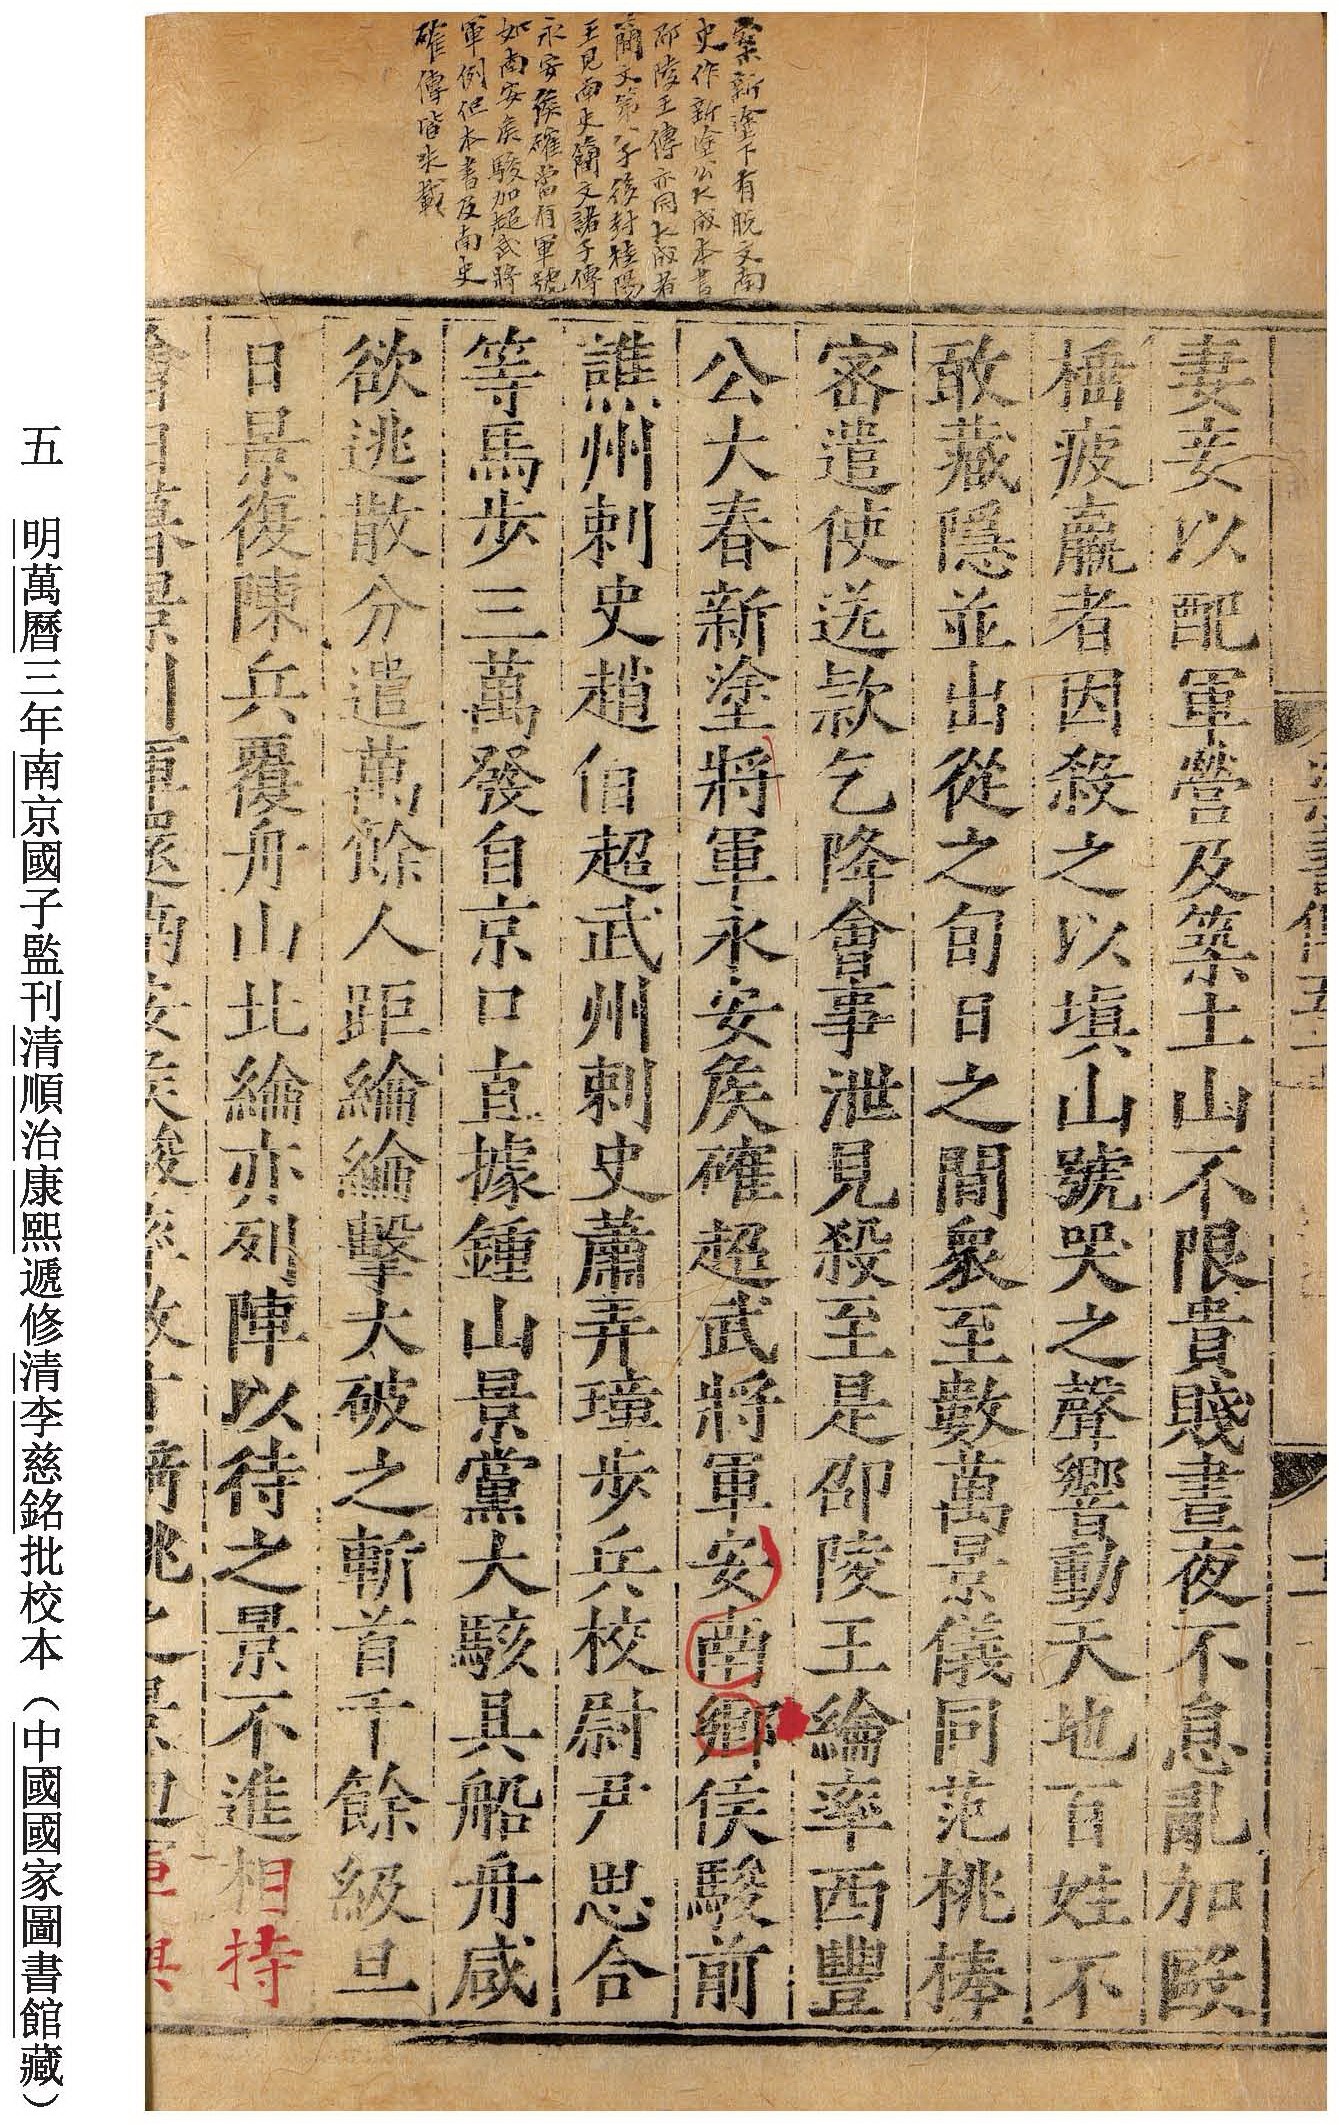 案新塗下有脫文南
史作新塗公大成本書
邵陵王傳亦同大成者
簡文第八子後封桂陽
王見南史簡文諸子傳
永安侯確當有軍號
如南安侯駿加超武將
軍例但本書及南史
確傳皆未載
妻妾以配軍營及築土山不限貴賤晝夜不息亂加毆
棰疲羸者因殺之以填山號哭之聲響動天地百姓不
敢藏隱並出從之旬日之間衆至數萬景儀同范桃棒
密遣使送款乞降會事泄見殺至是邵陵王綸率西豐
公大春新塗將軍永安侯確超武將軍安南鄉侯駿前
譙州刺史趙伯超武州刺史蕭弄璋步兵校尉尹思合
等馬步三萬發自京口直據鍾山景黨大駭具船舟咸
欲逃散分遣萬餘人距綸綸擊大破之斬首千餘級旦
日景復陳兵覆舟山北綸亦列陣以待之景不進相持
會日暮景引軍還南安侯駿率數十騎挑之景迴軍與
梁書傳五十
五 明萬曆三年南京國子監刊清順治康熙遞修清李慈銘批校本（中國國家圖書館藏）